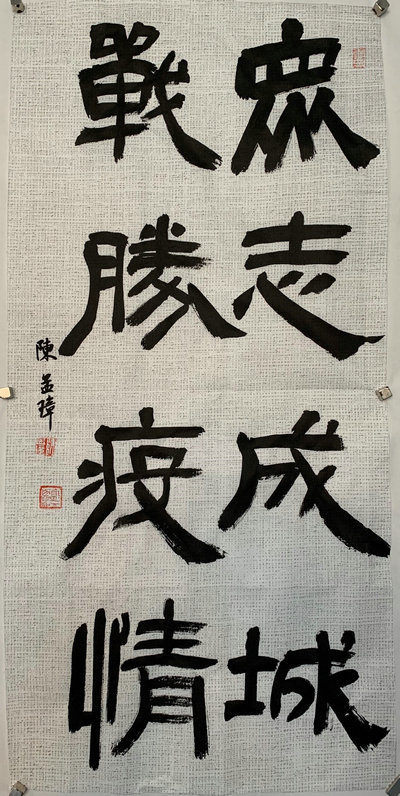 眾志成城
戰勝疫情
陳孟璋